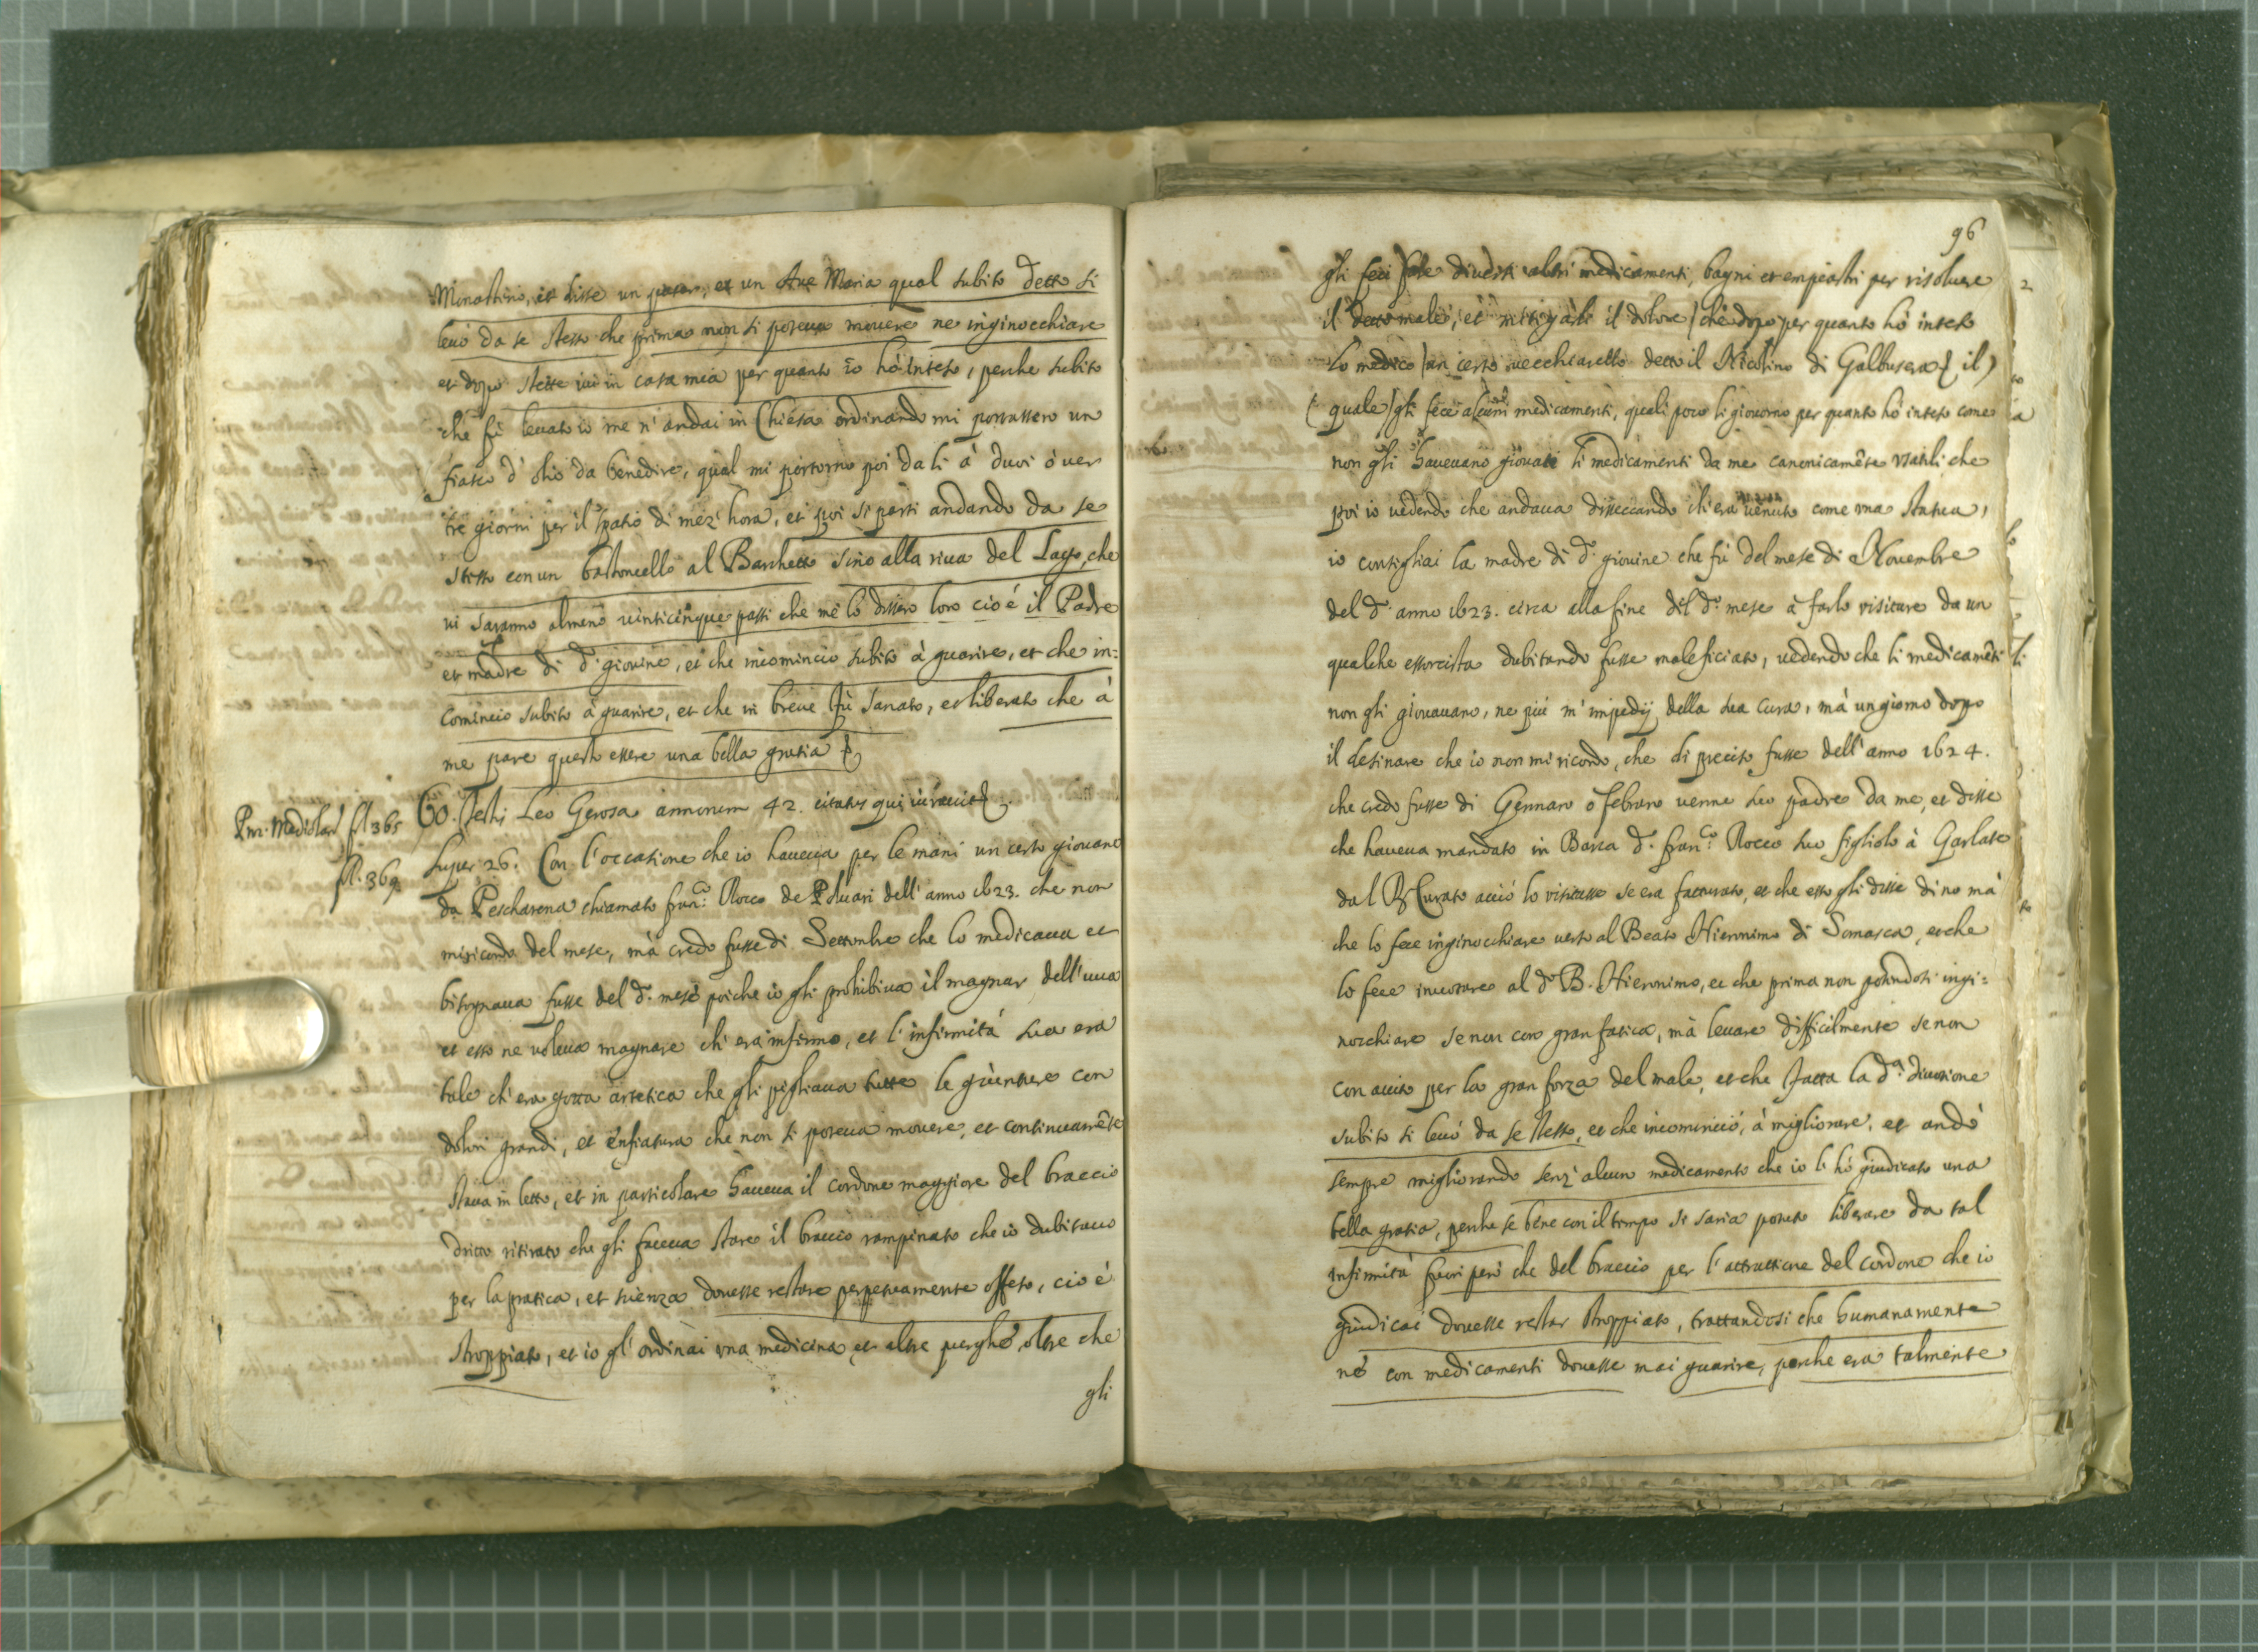 Monastirio, et disse un pater, et un Ave Maria qual subito detto si
levò da se stesso che prima non si poteva movere ne inginocchiare
et dopo stette ivi in casa mia per quanto io hò inteso, perche subito
che fù levato io me n'andai in Chiesa ordinando mi portassero un
fiasco d'olio da benedire, qual mi portorno poi da li à duoi ò ver
tre giorni per il spatio di mez'hora, et poi si partì andando da se
stesso con un bastoncello al Barchetto sino alla riva del Lago, che
vi saranno almeno vinticinque passi che me lo dissero loro cioè il Padre
et madre di d.º giovine, et che incominciò subito à guarire, et che in=
cominciò subito à guarire, et che in breve fù sanato, et liberato che à
me pare questo essere una bella gratia
60. Testis Leo Gerosa annorum 42. citatus qui iuravit
Pro. Mediolan. fl 365
fl. 369.
super 26. Con l'occasione che io haveva per le mani un certo giovane
da Pescharena chiamato Fran.co Rocco de Poluari dell'anno 1623. che non
mi ricordo del mese, mà credo fusse di Settembre che lo medicava et
bisognava fusse del d.º mese poiche io gli prohibiva il magnar dell'uva
et esso ne voleva magnare ch'era infermo, et l'infirmità sua era
tale ch'era gotta artetica che gli pigliava tutte le giunture con
dolori grandi, et enfiatura che non si poteva movere, et continuamēte
stava in letto, et in particolare haveva il cordone maggiore del braccio
dritto ritirato che gli faceva stare il braccio rampinato che io dubitavo
per la pratica, et scienza dovesse restare perpetuamente offeso, cioè
stroppiato, et io gl'ordinai una medicina et altre purghe, oltre che
gli
96
gli feci fare diversi altri medicamenti, bagni et empiastri per risolvere
il detto male, et mitigarli il dolore, che dopo per quanto hò inteso
lo medicò un certo vecchiarello detto il Nicolino di Galbusera il
quale gli fece alcuni medicamenti, quali poco li giovorno per quanto hò inteso come
non gli havevano giovato li medicamenti da me canonicamēte usatili che
poi io vedendo che andava disseccando ch'era venuto come una statua,
io consigliai la madre di d.º giovine che fù del mese di Novembre
del d.º anno 1623. circa alla fine del d.º mese à farlo visitare da un
qualche essorcista dubitando fusse maleficiato, vedendo che li medicamēti
non gli giovavano, ne più m'impedij della sua cura, mà un giorno dopo
il desinare che io non mi ricordo, che di preciso fusse dell'anno 1624.
che credo fusse di Gennaro o febraro venne suo padre da me, et disse
che haveva mandato in Barca d.º Fran.co Rocco suo figliolo à Garlate
dal R. Curato acciò lo visitasse se era fatturato, et che esso gli disse di no mà
che lo fece inginocchiare verso al Beato Hieronimo di Somasca, et che
lo fece invotare al d.º B. Hieronimo, et che prima non potendosi ingi=
nocchiare se non con gran fatica, mà levare difficilmente se non
con aiuto per la gran forza del male, et che fatta la d.ª divotione
subito si levò da se stesso, et che incominciò, à migliorare, et andò
sempre migliorando senz'alcun medicamento che io l'hò giudicato una
bella gratia, perche se bene con il tempo si saria potuto liberare da tal
infirmità fuori però che del braccio per l'attrattione del cordone che io
giudicai dovesse restar stroppiato, trattandosi che humanamente
nè con medicamenti dovesse mai guarire, perche era talmente